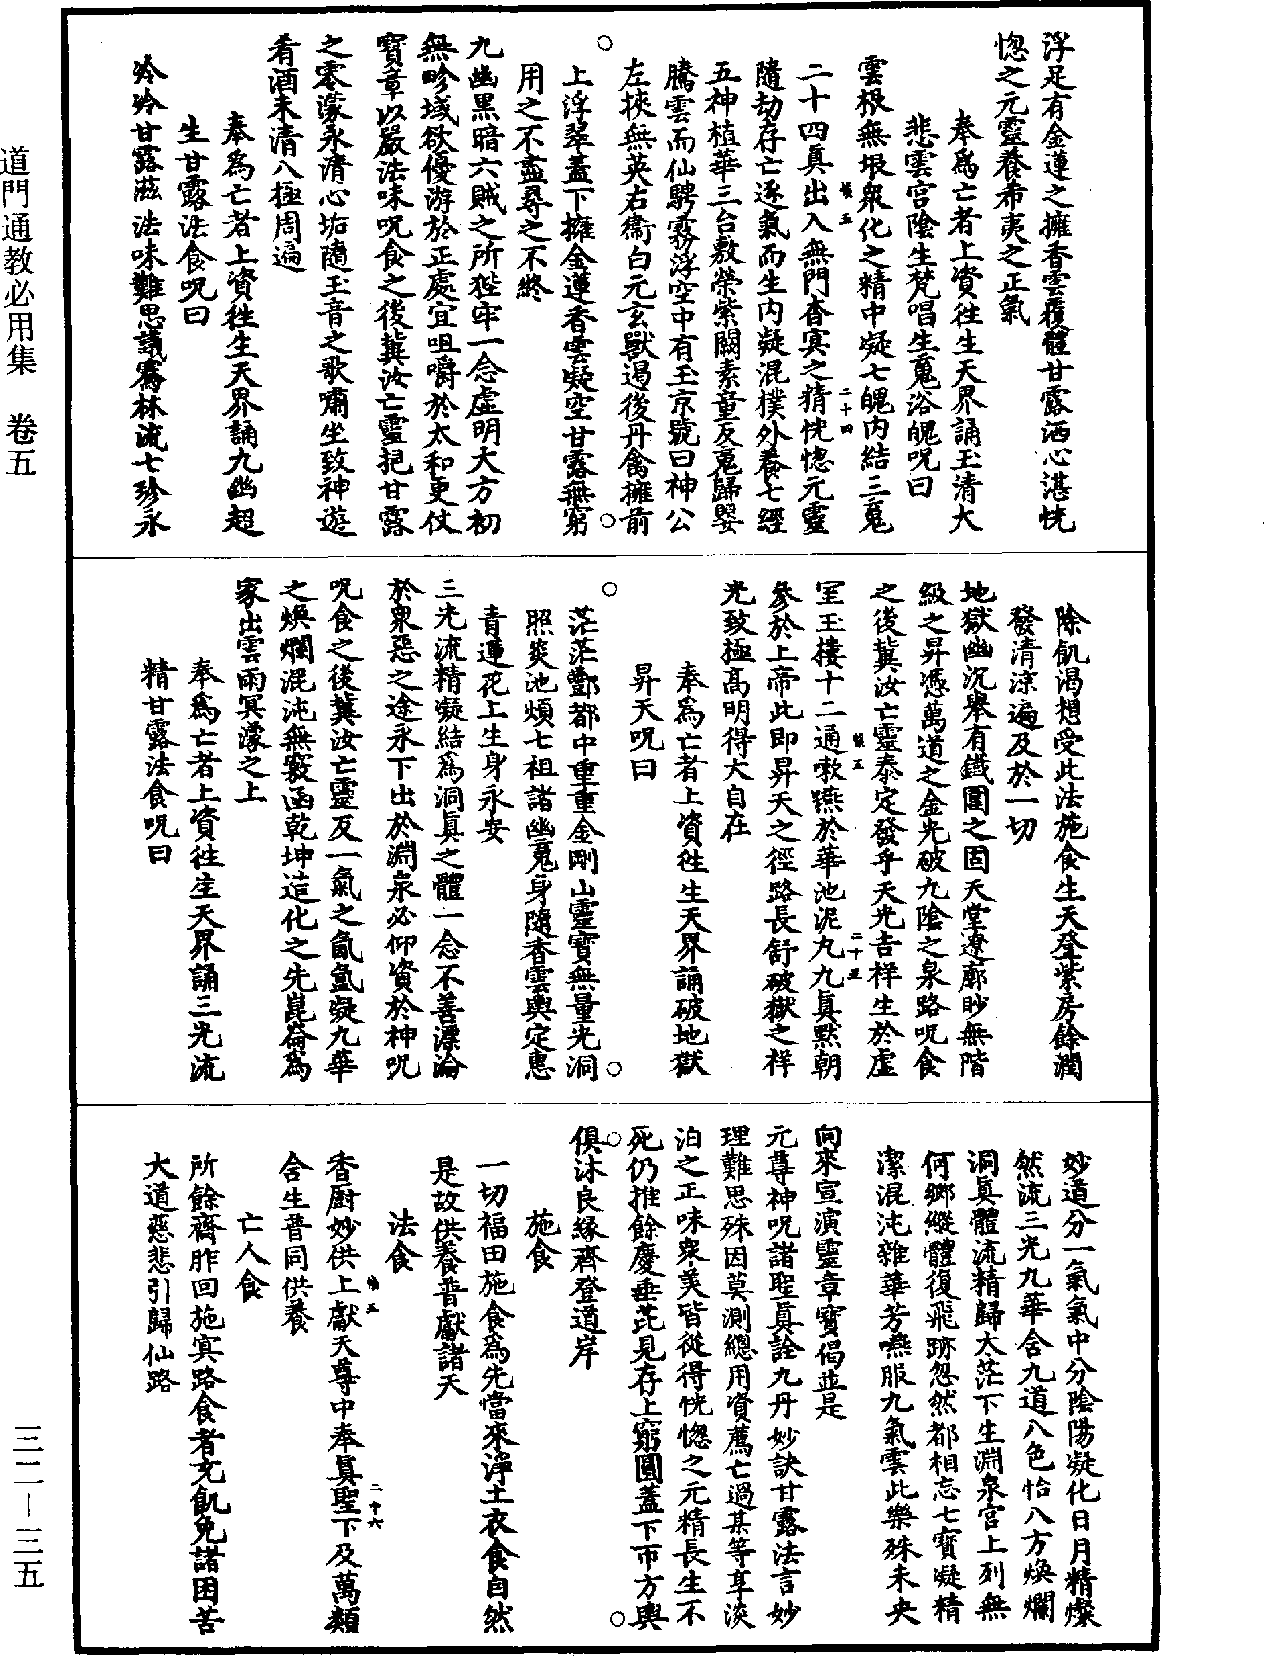 道門通教必用集　卷五
三二－三五
浮足有金蓮之擁香雲覆體甘露洒心湛恍
惚之元靈養希夷之正氣
奉爲亡者上資徃生天界誦玉清大
悲雲宮陰生梵唱生䰟浴魄呪曰
雲根無垠衆化之精中凝七魄内結三䰟
二十四眞出入無門杳冥之精恍惚元靈
隨劫存亡逐氣而生内凝混樸外養七經
五神植華三台敷榮紫闕素童反䰟歸嬰
騰雲而仙騁霧浮空中有玉京號曰神公
左挾無英右衞白元玄獸遏後丹禽擁前
上浮翠蓋下擁金蓮香雲凝空甘露無窮
用之不盡尋之不終
九幽黑暗六賊之所狴牢一念虛明大方初
無畛域欲優游於正處宜咀嚼於太和更仗
寶章以嚴法味呪食之後兾汝亡靈挹甘露
之零濛永清心垢隨玉音之歌嘯坐致神遊
肴酒未清八極周遍
奉爲亡者上資徃生天界誦九幽超
生甘露法食呪曰
泠泠甘露滋法味難思議騫林流七珍永
除飢渴想受此法施食生天登紫房餘潤
發清涼遍及於一切
地獄幽沉舉有鐵圍之固天堂遼廓眇無階
級之昇憑萬道之金光破九陰之泉路呪食
之後兾汝亡靈泰定發乎天光吉祥生於虛
室玉樓十二通嗽嚥於華池泥丸九眞黙朝
參於上帝此即昇天之徑路長舒破獄之祥
光致極高明得大自在
奉爲亡者上資徃生天界誦破地獄
昇天呪曰
茫茫酆都中重重金剛山靈寶無量光洞
照炎池煩七祖諸幽䰟身隨香雲輿定惠
青蓮花上生身永安
三光流精凝結爲洞眞之體一念不善漂淪
於衆惡之途永下出於淵泉必仰資於神呪
呪食之後兾汝亡靈反一氣之氤氳凝九華
之煥爛混沌無竅函乾坤造化之先崑崙爲
家出雲雨冥濛之上
奉爲亡者上資徃生天界誦三光流
精甘露法食呪曰
妙道分一氣氣中分陰陽凝化日月精燦
然流三光九華含九道八色恰八方煥爛
洞眞體流精歸太茫下生淵泉宮上列無
何鄉縱體復飛跡忽然都相忘七寶凝精
潔混沌雜華芳嚥服九氣雲此樂殊未央
向來宣演靈章寶偈並是
元尊神呪諸聖眞詮九丹妙訣甘露法言妙
理難思殊因莫測總用資薦亡過某等享淡
泊之正味衆美皆從得恍惚之元精長生不
死仍推餘慶垂芘見存上窮圓蓋下帀方輿
俱沐良緣齊登道岸
施食
一切福田施食爲先當來淨土衣食自然
是故供養普獻諸天
法食
香厨妙供上獻天尊中奉眞聖下及萬類
含生普同供養
亡人食
所餘齋胙回施冥路食者充飢免諸困苦
大道慈悲引歸仙路
二十四
二十五
二十六